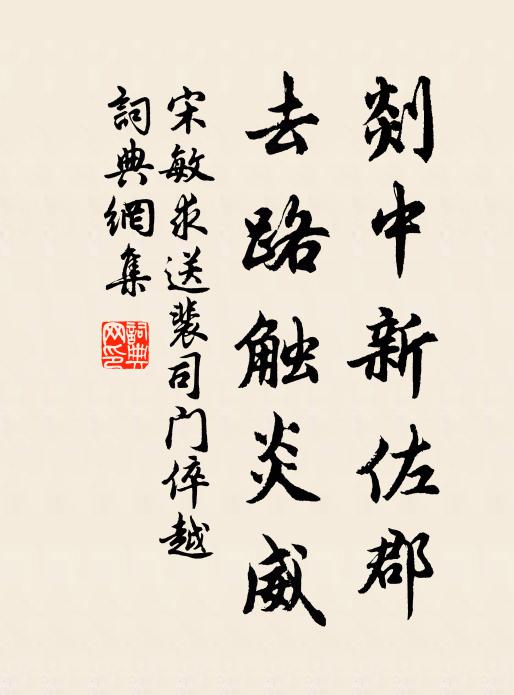 剡中新佐郡
去路触炎威
宋敏求送裴司门倅越
詞典網集
詞典
网印